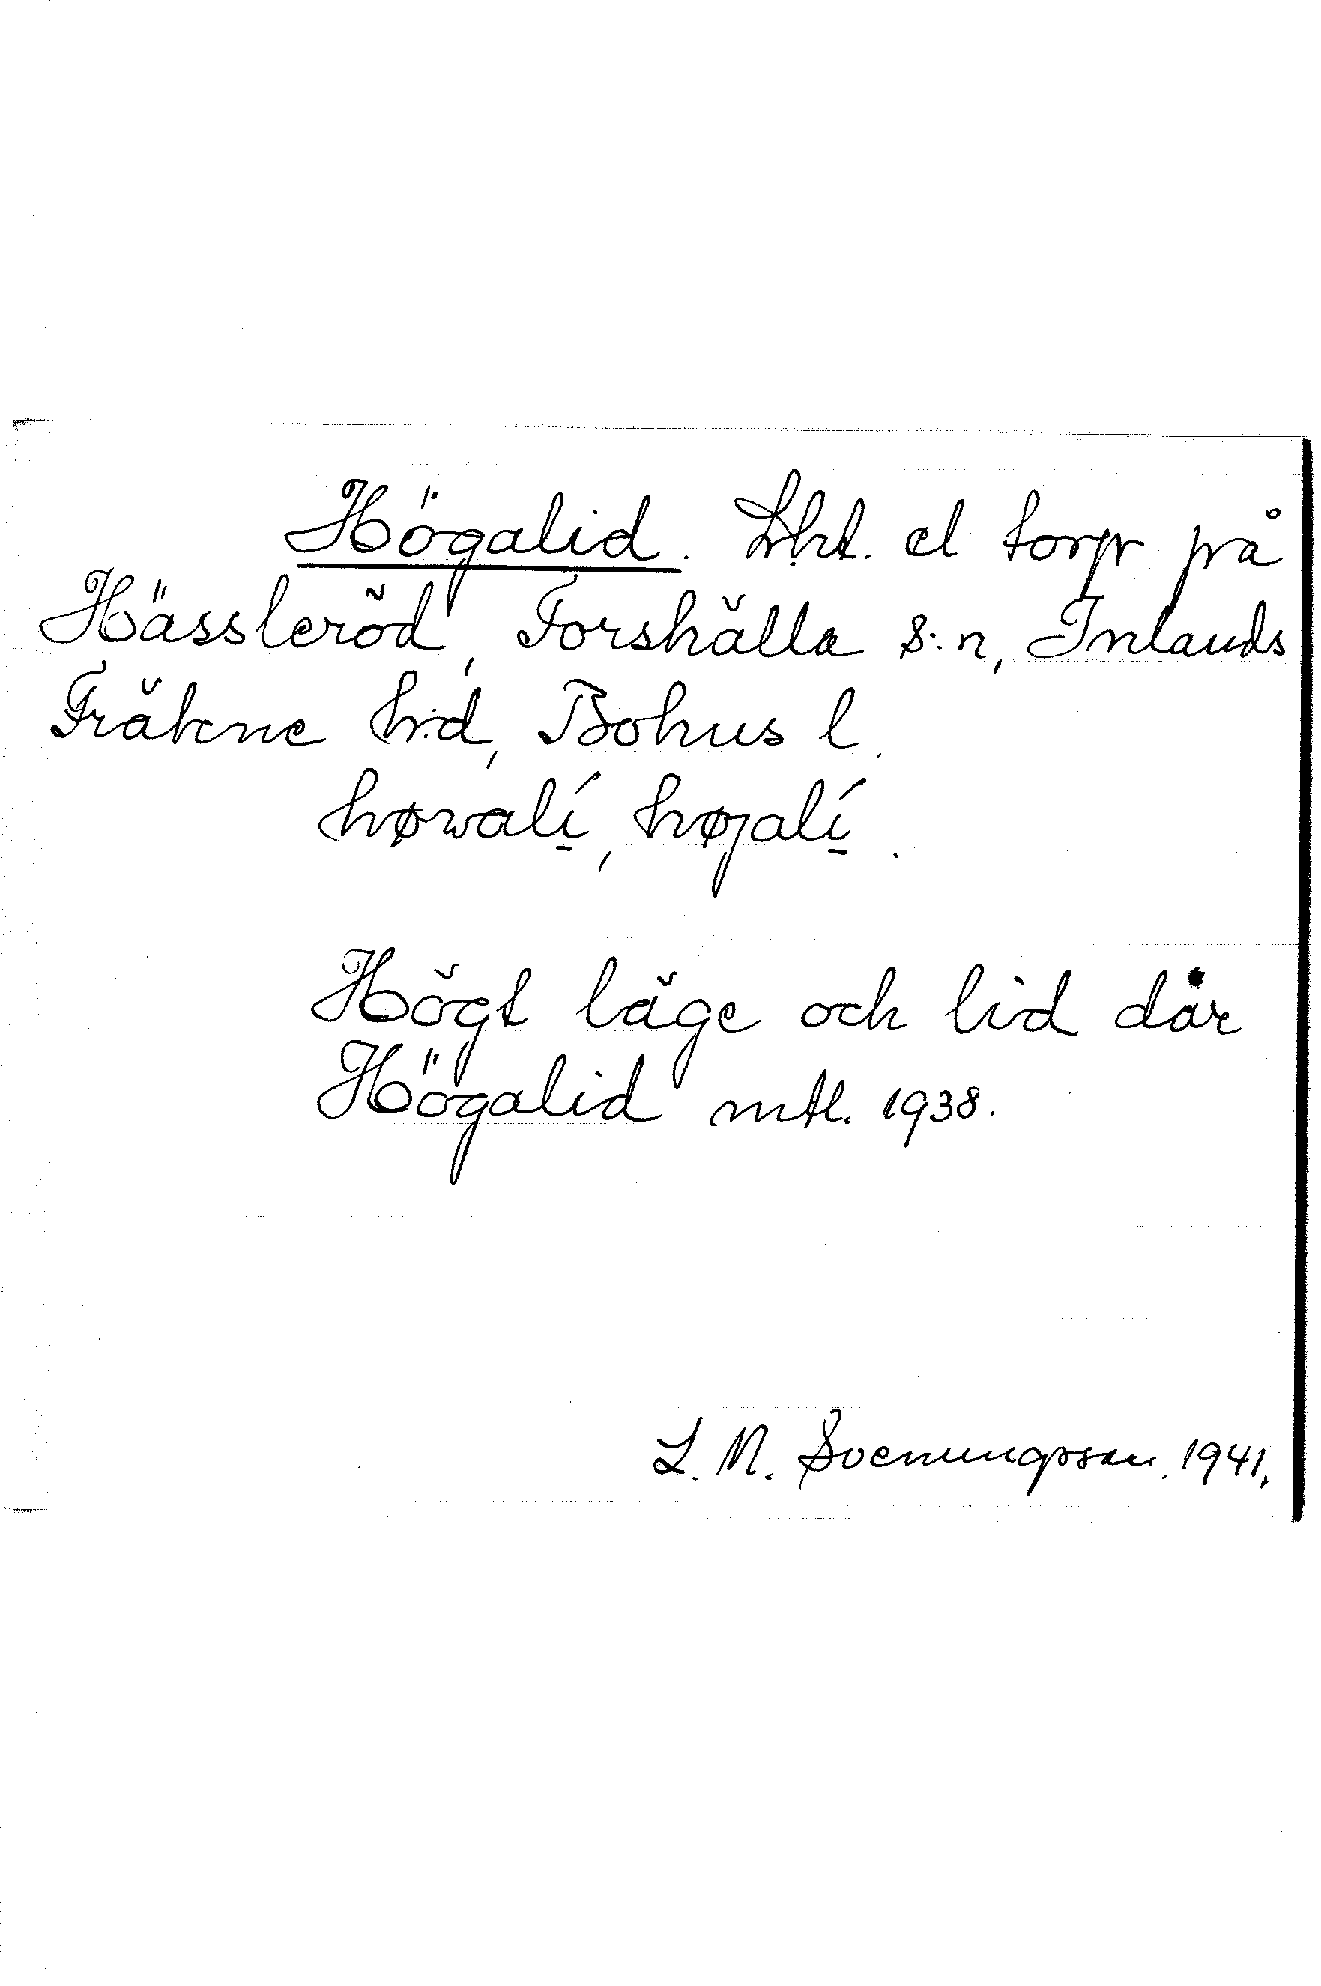 Högalid. Lht. el torp på
Hässleröd, Forshälla s:n, Inlands
Fräkne h:d, Bohus l.
høwalí̱, højalí̱.
Högt läge och lid där
Högalid mtl. 1938.
L. N. Svenungsson. 1941.